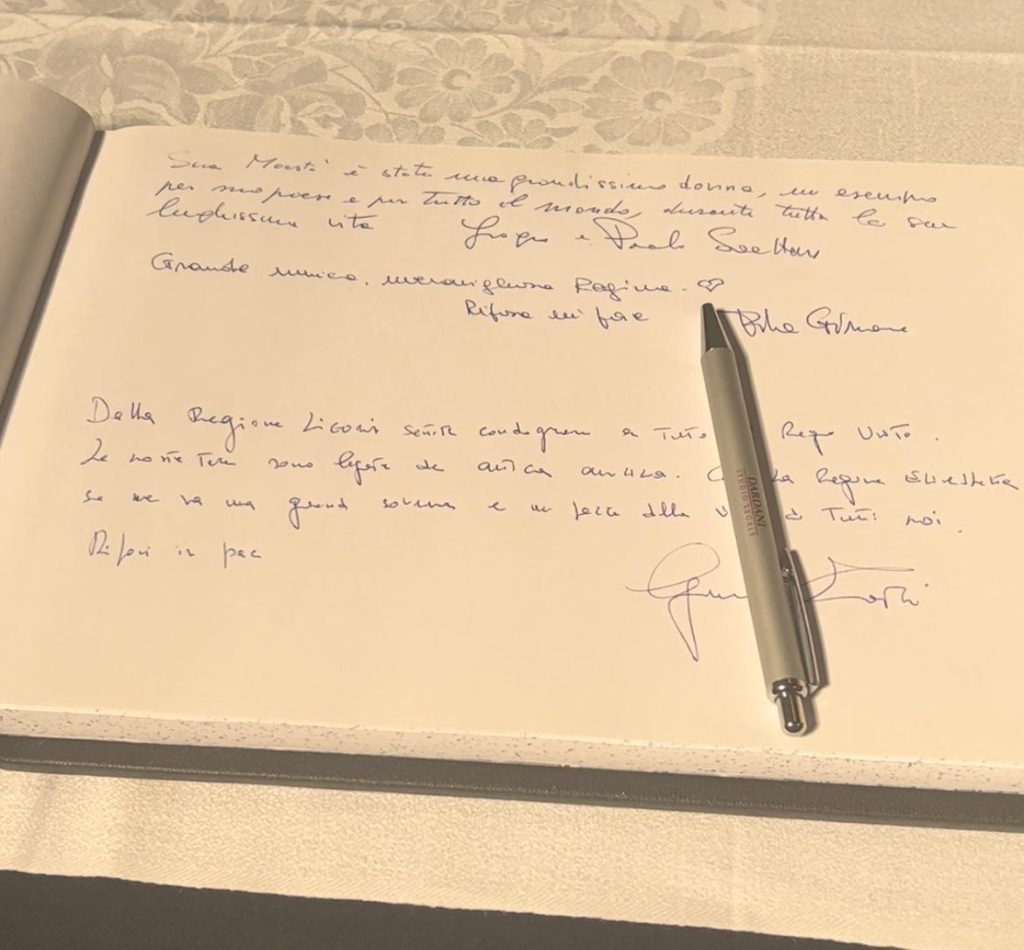 Sua Maestà è stata una grandissima donna, un esempio
per suo paese e per tutto il mondo, durante tutta la sua
lughissima vita
e Paolo
Grande unica, meravigliosa Regina.
Riposa in pace
Dalla Regione Liguria sentite a tutto Regno Unito.
Le nostre terre sono legate da antica amicizia. la Regina Elisabetta
se ne va una grande sovrana e un pezzo della di tutti noi.
Riposi in pace
DARDANI
STUDIO LEGALE